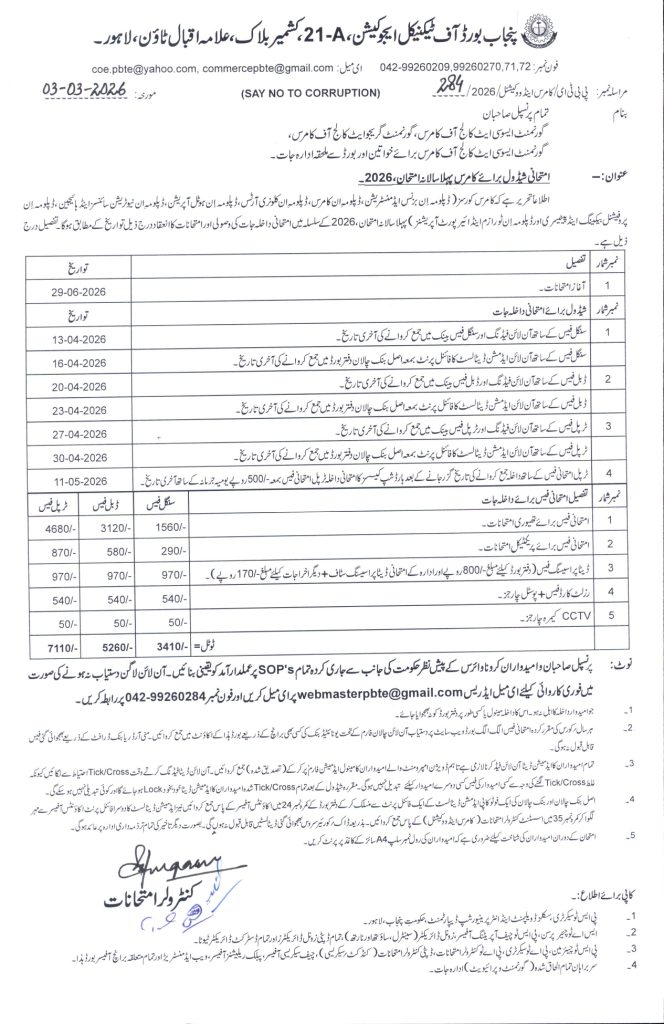 پنجاب بورڈ آف ٹیکنیکل ایجوکیشن، 21-A، کشمیر بلاک، علامہ اقبال ٹاؤن، لاہور۔
فون نمبر: 042-99260209,99260270,71,72 ای میل: coe.pbte@yahoo.com, commercepbte@gmail.com
مراسلہ نمبر: پی بی ٹی ای/کامرس اینڈ ووکیشنل/2026/ 284 (SAY NO TO CORRUPTION) مورخہ: 03-03-2026
بنام تمام پرنسپل صاحبان
گورنمنٹ ایسوسی ایٹ کالج آف کامرس، گورنمنٹ گریجوایٹ کالج آف کامرس،
گورنمنٹ ایسوسی ایٹ کالج آف کامرس برائے خواتین اور بورڈ سے ملحقہ ادارہ جات۔
عنوان:– امتحانی شیڈول برائے کامرس پہلا سالانہ امتحان، 2026۔
اطلاعاً تحریر ہے کہ کامرس کورسز (ڈپلومہ اِن بزنس ایڈمنسٹریشن، ڈپلومہ اِن کامرس، ڈپلومہ اِن کلنری آرٹس، ڈپلومہ اِن ہوٹل آپریشن، ڈپلومہ اِن نیوٹریشن سائنسز اینڈ ہائیجین، ڈپلومہ اِن
پروفیشنل بیکنگ اینڈ پیٹیسری اور ڈپلومہ اِن ٹورازم اینڈ ائیرپورٹ آپریشنز) پہلا سالانہ امتحان، 2026 کے سلسلہ میں امتحانی داخلہ جات کی وصولی اور امتحانات کا انعقاد درج ذیل تواریخ کے مطابق ہوگا۔ تفصیل درج
ذیل ہے۔
نمبر شمار تفصیل تواریخ
1 آغاز امتحانات۔ 29-06-2026
نمبر شمار شیڈول برائے امتحانی داخلہ جات تواریخ
1 سنگل فیس کے ساتھ آن لائن فیڈنگ اور سنگل فیس بینک میں جمع کروانے کی آخری تاریخ۔ 13-04-2026
سنگل فیس کے ساتھ آن لائن ایڈمشن ڈیٹا لسٹ کا فائنل پرنٹ بمعہ اصل بنک چالان دفتر بورڈ میں جمع کروانے کی آخری تاریخ۔ 16-04-2026
2 ڈبل فیس کے ساتھ آن لائن فیڈنگ اور ڈبل فیس بینک میں جمع کروانے کی آخری تاریخ۔ 20-04-2026
ڈبل فیس کے ساتھ آن لائن ایڈمشن ڈیٹا لسٹ کا فائنل پرنٹ بمعہ اصل بنک چالان دفتر بورڈ میں جمع کروانے کی آخری تاریخ۔ 23-04-2026
3 ٹرپل فیس کے ساتھ آن لائن فیڈنگ اور ٹرپل فیس بینک میں جمع کروانے کی آخری تاریخ۔ 27-04-2026
ٹرپل فیس کے ساتھ آن لائن ایڈمشن ڈیٹا لسٹ کا فائنل پرنٹ بمعہ اصل بنک چالان دفتر بورڈ میں جمع کروانے کی آخری تاریخ۔ 30-04-2026
4 ٹرپل امتحانی فیس کے ساتھ داخلہ جمع کروانے کی تاریخ گزر جانے کے بعد ہارڈ شپ کیسز کا امتحانی داخلہ ٹرپل امتحانی فیس بمعہ -/500 روپے یومیہ جرمانہ کے ساتھ آخری تاریخ۔ 11-05-2026
نمبر شمار تفصیل امتحانی فیس برائے داخلہ جات سنگل فیس ڈبل فیس ٹرپل فیس
1 امتحانی فیس برائے تھیوری امتحانات۔ 1560/- 3120/- 4680/-
2 امتحانی فیس برائے پریکٹیکل امتحانات۔ 290/- 580/- 870/-
3 ڈیٹا پراسیسنگ فیس (دفتر بورڈ کیلئے مبلغ -/800 روپے اور ادارہ کے امتحانی ڈیٹا پراسیسنگ سٹاف + دیگر اخراجات کیلئے مبلغ -/170 روپے)۔ 970/- 970/- 970/-
4 رزلٹ کارڈ فیس + پوسٹل چارجز۔ 540/- 540/- 540/-
5 CCTV کیمرہ چارجز۔ 50/- 50/- 50/-
ٹوٹل= 3410/- 5260/- 7110/-
نوٹ: پرنسپل صاحبان و امیدواران کرونا وائرس کے پیش نظر حکومت کی جانب سے جاری کردہ تمام SOP's پر عملدرآمد کو یقینی بنائیں۔ آن لائن لاگن دستیاب نہ ہونے کی صورت
میں فوری کاروائی کیلئے ای میل ایڈریس webmasterpbte@gmail.com پر ای میل کریں اور فون نمبر 042-99260284 پر رابطہ کریں۔
1۔ جو امیدوار داخلہ کا اہل نہ ہو۔ اس کا داخلہ مینول یا کسی طور پر دفتر بورڈ کو نہ بھجوایا جائے۔
2۔ ہر سال/کورس کی مقرر کردہ امتحانی فیس الگ الگ بورڈ ویب سائیٹ پر دستیاب آن لائن چالان فارم کے تحت یونائیٹڈ بنک کی کسی بھی برانچ کے ذریعے بورڈ ہذا کے اکاؤنٹ میں جمع کروائیں۔ منی آرڈر یا بنک ڈرافٹ کے ذریعے بھجوائی گئی فیس
قابل قبول نہ ہوگی۔
3۔ تمام امیدواران کا ایڈمیشن ڈیٹا آن لائن فیڈ کرنا لازمی ہے تاہم ڈویژن امپرومنٹ والے امیدواران کا مینول ایڈمیشن فارم پُر کر کے (تصدیق شدہ) جمع کروائیں۔ آن لائن ایڈمیشن ڈیٹا فیڈنگ کرتے وقت Tick/Cross احتیاط سے لگائیں کیونکہ
غلط Tick/Cross لگنے کی وجہ سے کسی امیدوار کی فیس کسی دوسرے امیدوار کیلئے تبدیل نہیں ہوگی۔ مقررہ شیڈول کے بعد تمام Tick/Cross شدہ امیدواران کا ایڈمیشن ڈیٹا خودبخود Lock ہو جائے گا اور کوئی تبدیلی نہیں ہو سکے گی۔
4۔ اصل بنک چالان اور بنک چالان کی ایک فوٹو کاپی ایڈمیشن ڈیٹا لسٹ کے ایک فائنل پرنٹ سے منسلک کر کے دفتر بورڈ کے کمرہ نمبر 24 میں اکاؤنٹس آفیسر کے پاس جمع کروائیں نیز ایڈمیشن ڈیٹا لسٹ کا دوسرا فائنل پرنٹ اکاؤنٹس آفیسر سے مہر
لگوا کر کمرہ نمبر 35 میں اسسٹنٹ کنٹرولر امتحانات (کامرس اینڈ ووکیشنل) کے پاس جمع کروائیں۔ بذریعہ ڈاک/کورئیر سروس بھجوائی گئی ڈیٹا لسٹیں قابل قبول نہ ہوں گی۔ بصورت دیگر تاخیر کی تمام تر ذمہ داری ادارہ پر عائد ہوگی۔
5۔ امتحان کے دوران امیدواران کی شناخت کیلئے ضروری ہے کہ امیدواران کی رول نمبر سلپ A4 سائز کے کاغذ پر پرنٹ کریں۔
کنٹرولر امتحانات
کاپی برائے اطلاع:۔
1۔ پی ایس ٹو سیکرٹری، سکلز ڈویلپمنٹ اینڈ انٹر پرینیورشپ ڈیپارٹمنٹ، حکومت پنجاب، لاہور۔
2۔ ایس اے ٹو چیئر پرسن، پی ایس ٹو چیف آپریٹنگ آفیسر، زونل ڈائریکٹر (سینٹرل، ساؤتھ اور نارتھ)، تمام ڈپٹی زونل ڈائریکٹرز اور تمام ڈسٹرکٹ ڈائریکٹرز ٹیوٹا۔
3۔ پی ایس ٹو چیئرمین، پی اے ٹو سیکرٹری، پی اے ٹو کنٹرولر امتحانات، ڈپٹی کنٹرولر امتحانات (کنڈکٹ/سیکریسی)، چیف سیکریسی آفیسر، پبلک ریلیشنز آفیسر، ویب ایڈمنسٹریٹر اور تمام متعلقہ برانچ آفیسر بورڈ ہذا۔
4۔ سربراہان تمام الحاق شدہ (گورنمنٹ و پرائیویٹ) ادارہ جات۔